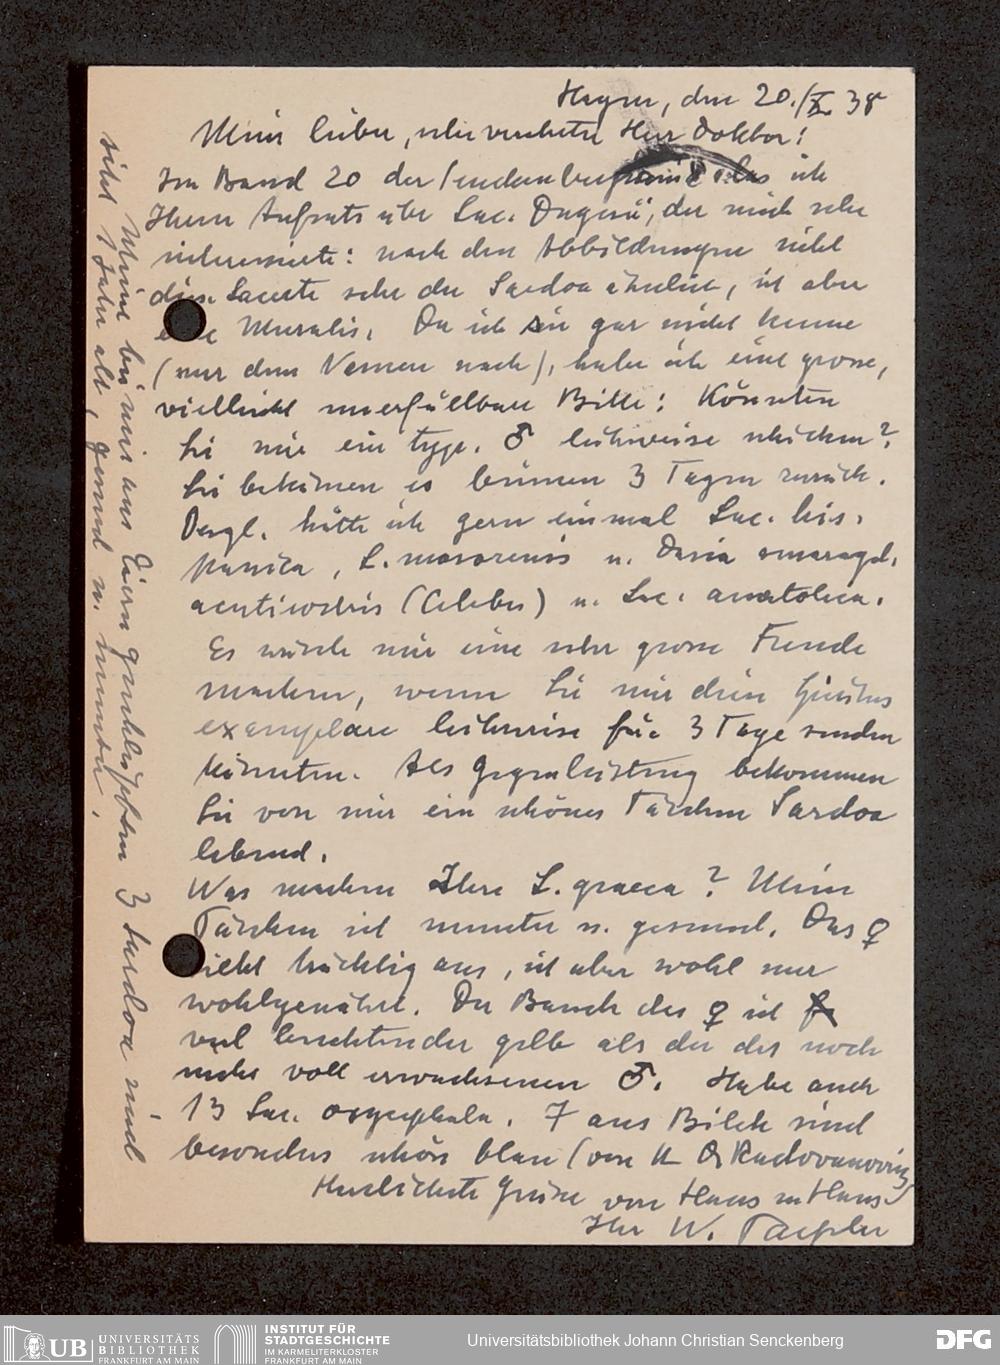 Hagen, den 20./X. 38
Mein lieber, sehr verehrter Herr Doktor!
Im Band 20 der Senckenbergiana las ich
Ihren Aufsatz über Lac. Dugesii, der mich sehr
interessierte: nach den Abbildungen sieht
diese Lacerta sehr der Sardoa ähnlich, ist aber
eine Muralis. Da ich sie gar nicht kenne
(nur dem Namen nach), habe ich eine grosse,
vielleicht unerfüllbare Bitte: Könnten
Sie mir ein typ. ♂ leihweise schicken?
Sie bekämen es binnen 3 Tagen zurück.
Desgl. hätte ich gern einmal Lac. his-
panica, L. mosorensis u. Dasia smaragd.
acutirostris (Celebes) u. Lac. anatolica.
Es würde mir eine sehr grosse Freude
machen, wenn Sie mir diese Spiritus
exemplare leihweise für 3 Tage senden
könnten. Als Gegenleistung bekommen
Sie von mir ein schönes Pärchen Sardoa
lebend.
Was machen Ihre L. graeca? Mein
Pärchen ist munter u. gesund. Das ♀
sieht trächtig aus, ist aber wohl nur
wohlgenährt. Der Bauch des ♀ ist
viel leuchtender gelb als der des noch
nicht voll erwachsenen ♂. Habe auch
13 Lac. oxycephala. 7 aus Bilek sind
besonders schön blau (von Dr Radovanović)
Herzlichste Grüsse von Haus zu Haus
Ihr W.
Meine bei mir aus Eiern geschlüpften 3 Sardoa sind
jetzt 1 Jahr alt, gesund u. munter.
UB UNIVERSITÄTS
BIBLIOTHEK
FRANKFURT AM MAIN
INSTITUT FÜR
STADTGESCHICHTE
IM KARMELITERKLOSTER
FRANKFURT AM MAIN
Universitätsbibliothek Johann Christian Senckenberg
DFG